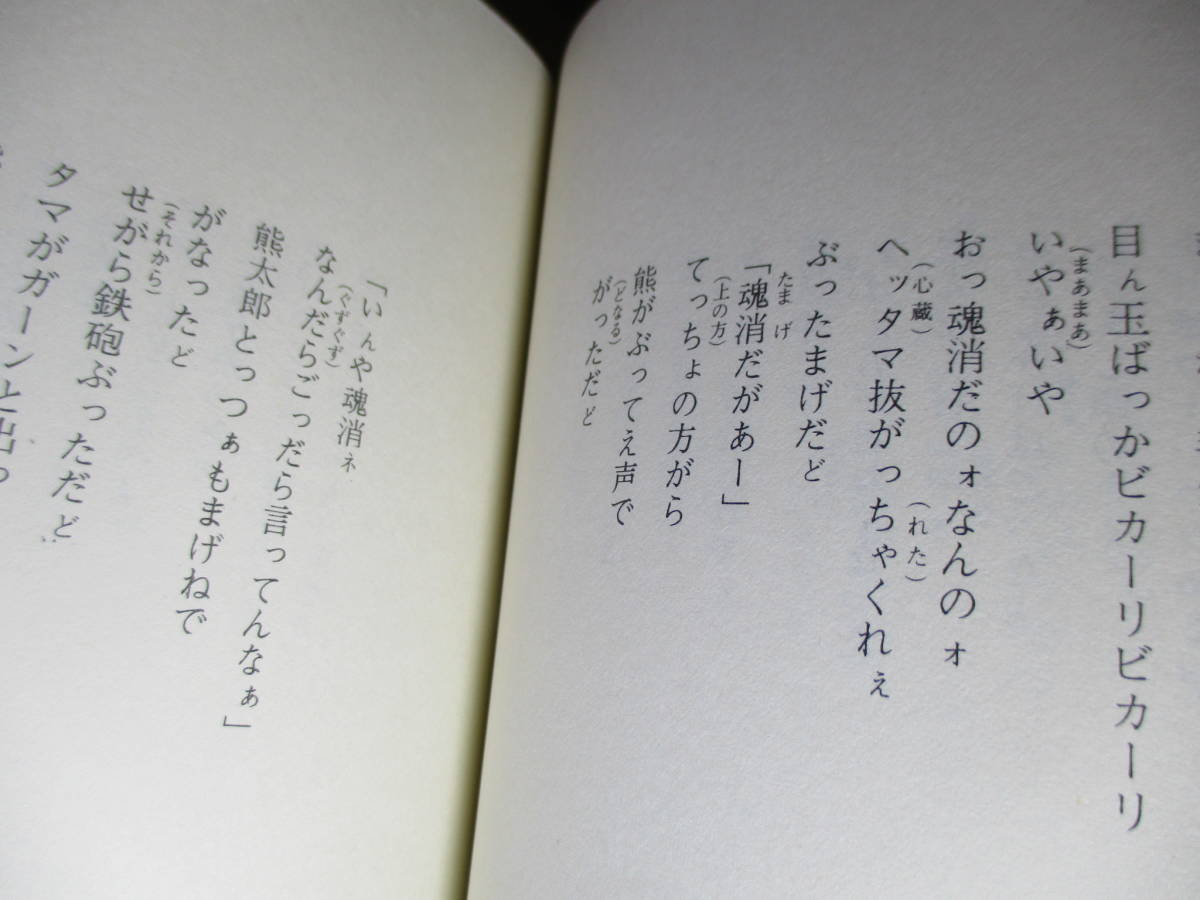 目ん玉ばっかビカーリビカーリ
いやぁいや
(まあまあ)
おっ魂消だのォなんのォ
ヘッタマ抜がっちゃくれぇ
(心蔵)
(れた)
ぶったまげだど
「魂消だがあー」
たまげ
てっちょの方がら
(上の方)
熊がぶってえ声で
がっただど
(どなる)
「いんや魂消ネ
なんだらごっだら言ってんなぁ」
(ぐずぐず)
熊太郎とっつぁもまげねで
がなっただど
せがら鉄砲ぶっただど
(それから)
タマがガーンと出っ